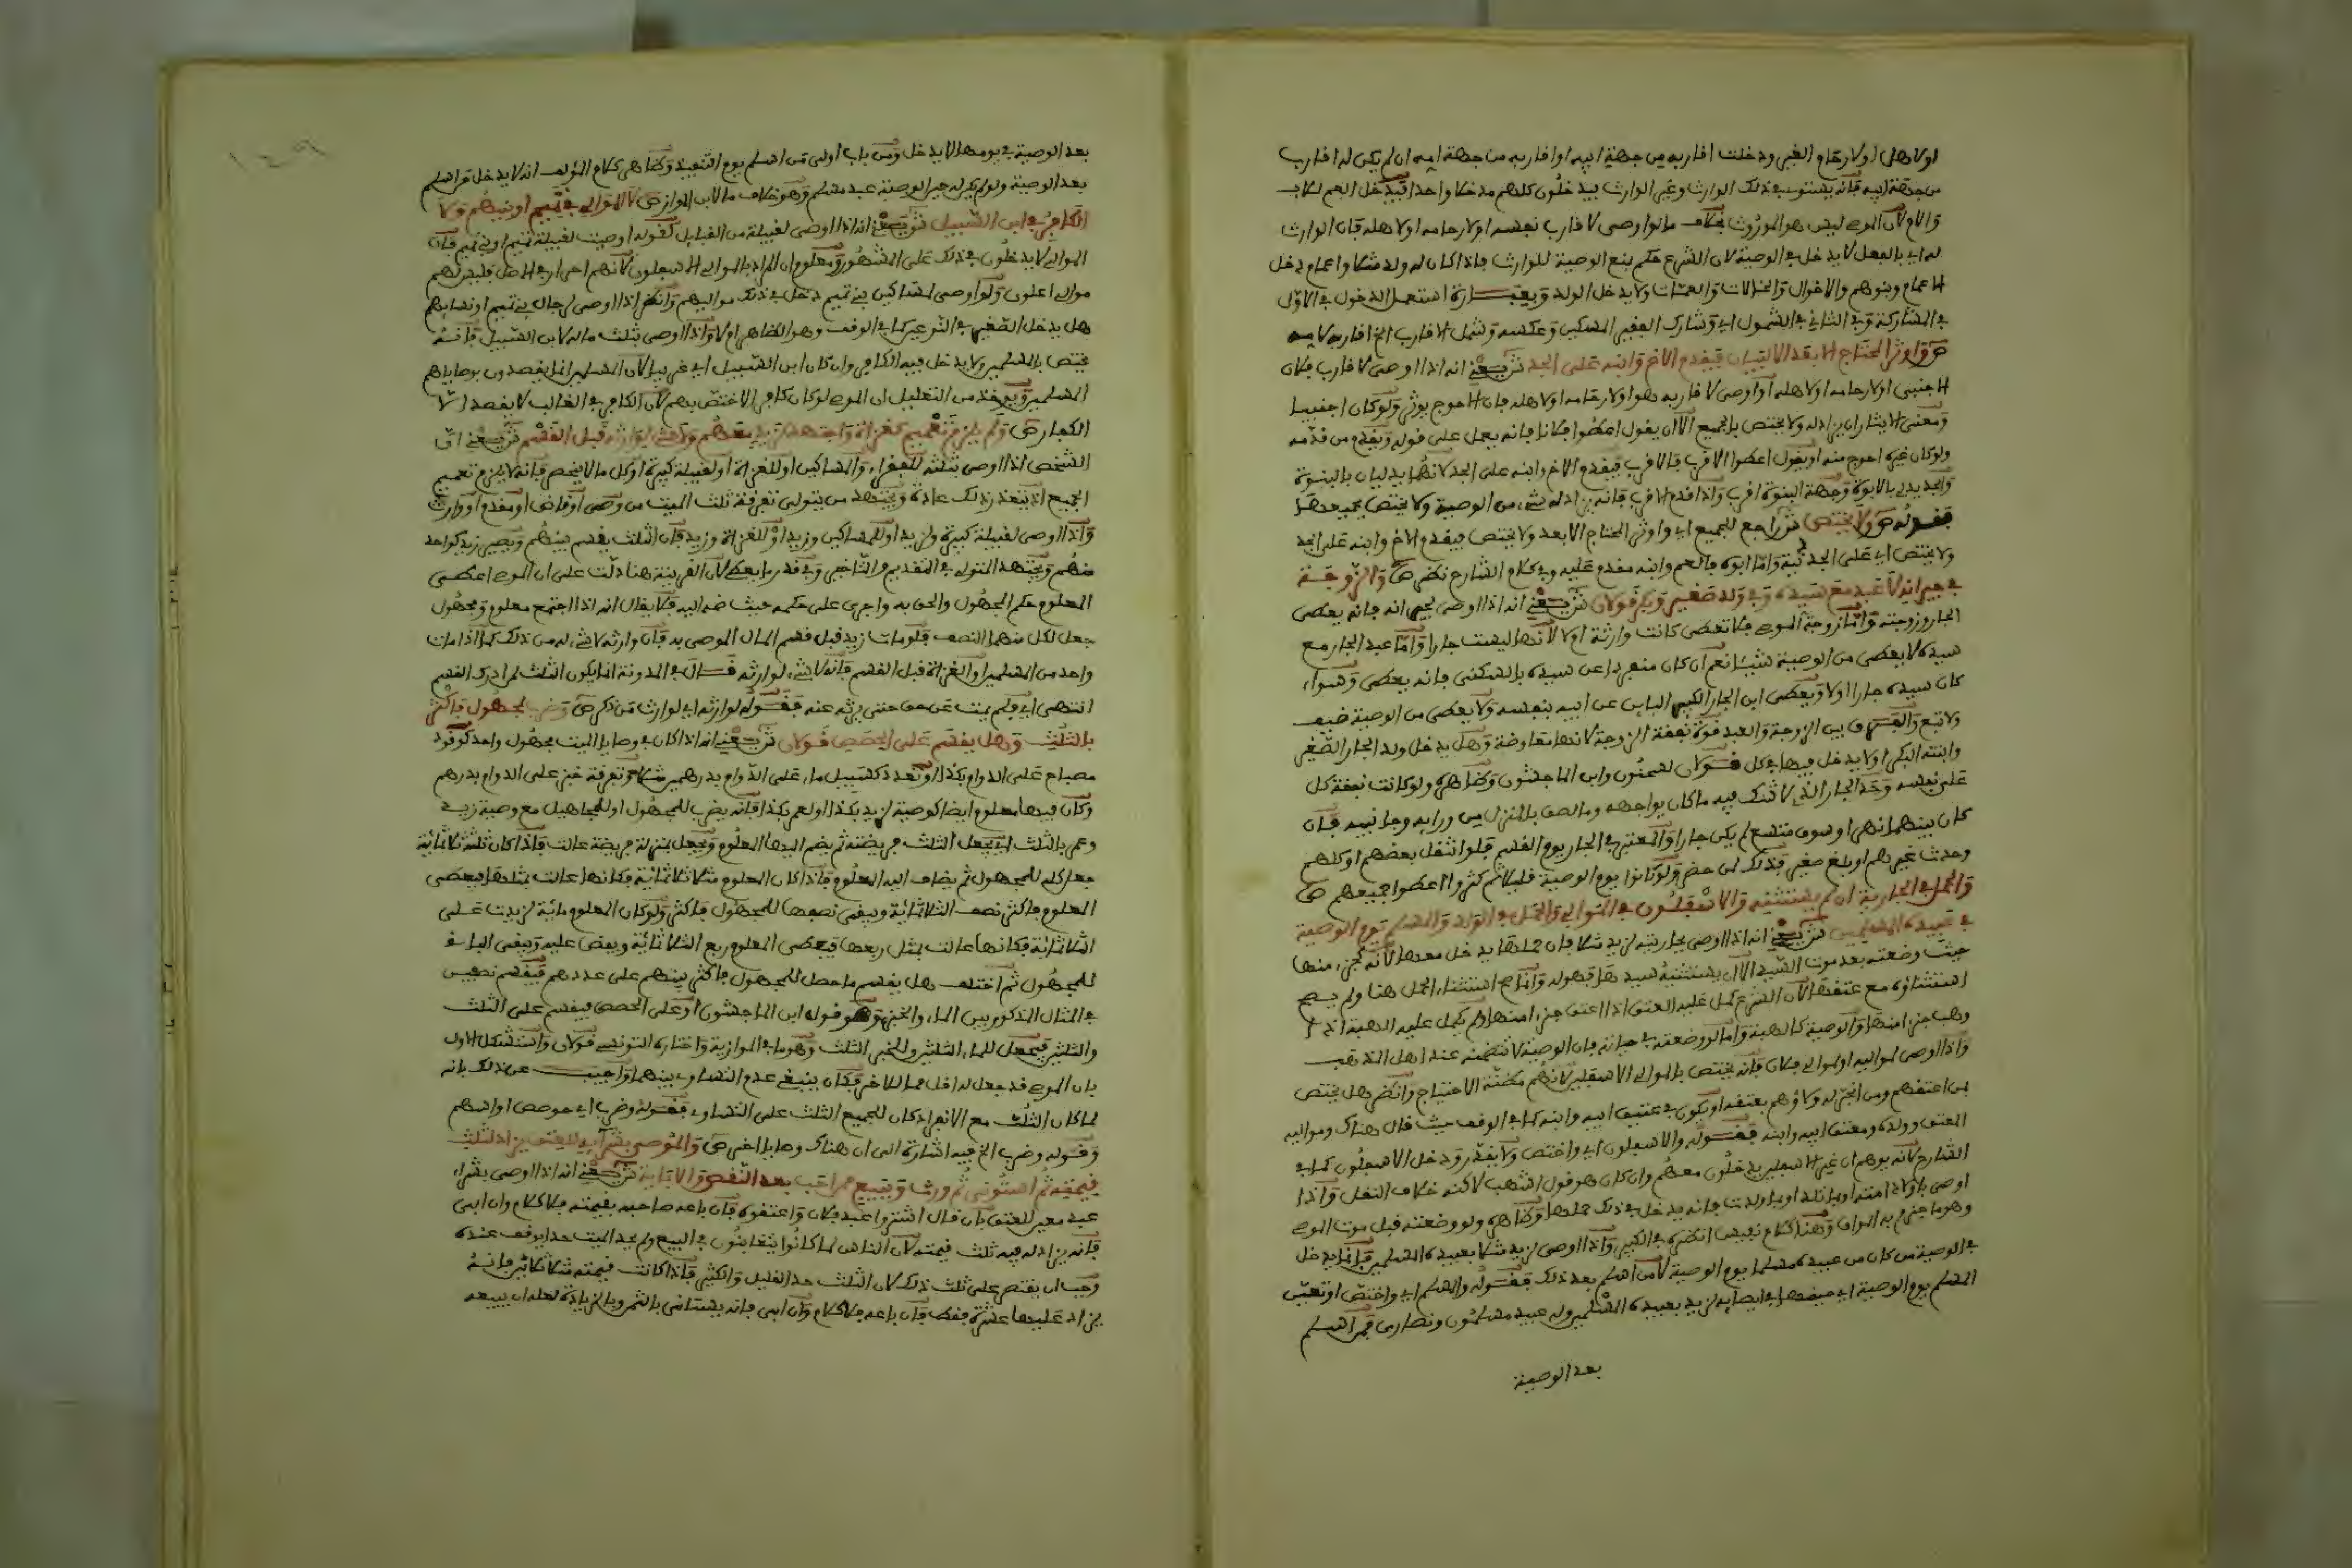 اولاهله اولارحام الغير ودخلت اقاربه من جهة ابيه اواقاربه من جهة امه ان لم يكن له اقارب
من جهة ابيه فانه يستوى في ذلك الوارث وغير الوارث فيدخلون كلهم مدخلا واحدا فيدخل العم للاب
والام لان الموصى ليس هو الموروث بخلاف ما لو اوصى لاقارب نفسه اولارحامه اولاهله فان الوارث
له اي بالفعل لا يدخل في الوصية لان الشرع حكم بمنع الوصية للوارث فاذا كان له ولد مثلا واعمام دخل
الاعمام وبنوهم والاخوال والخالات والعمات ولا يدخل الولد وبعبارة استعمل الدخول في الاول
في المشاركة وفي الثاني في الشمول اي وشارك الفقير المسكين وعكسه وشمل الاقارب الخ اقاربه لامه
ص واوثر المحتاج الابعد الا لبيان فيقدم الاخ وابنه على الجد ش يعني انه اذا اوصى لاقارب فلان
الاجنبي اولارحامه اولاهله او اوصى لاقاربه هو اولارحامه اولاهله فان الاحوج يوثر ولو كان اجنبيا
ومعنى الايثار ان يزاد له ولا يختص بالجميع الا ان يقول اعطوا فلانا فانه يعمل على قوله ويقدم من قدمه
ولو كان غيره احوج منه او يقول اعطوا الاقرب فالاقرب فيقدم الاخ وابنه على الجد لانهما يدليان بالبنوة
والجد يدلي بالابوة وجهة البنوة اقرب واذا قدم الاقرب فانه يزاد له شيء من الوصية ولا يختص بجميعها
فقوله ص ولا يختص ش راجع للجميع اي واوثر المحتاج الابعد ولا يختص فيقدم الاخ وابنه على الجد
ولا يختص اي على الجد دنية واما ابوه فالعم وابنه مقدم عليه وفي كلام الشارح نظر ص والزوجة
في جيرانه لا عبد مع سيده وفي ولد صغير وبكر قولان ش يعني انه اذا اوصى لجيرانه فانه يعطى
الجار وزوجته واما زوجة الموصى فلا تعطى كانت وارثة او لا لانها ليست جارا واما عبد الجار مع
سيده لا يعطى من الوصية شيئا نعم ان كان منفردا عن سيده بالسكنى فانه يعطى وسواء
كان سيده جارا اولا ويعطى ابن الجار الكبير الباين عن ابيه بنفسه ولا يعطى من الوصية ضيف
ولا تبع والفرق بين الزوجة والعبد قوة نفقة الزوجة لانها معاوضة وهل يدخل ولد الجار الصغير
وابنته البكر اولا يدخل فيها في كل قولان لسحنون وابن الماجشون وظاهره ولو كانت نفقة كل
على نفسه وحد الجار الذي لا شك فيه ما كان يواجهه وما لصق بالمنزل من ورايه وجانبيه فان
كان بينهما نهر او سوق متسع لم يكن جارا والمعتبر في الجار يوم القسم فلو انتقل بعضهم او كلهم
وحدث غيرهم او بلغ صغير فذلك لمن حضر ولو كانوا يوم الوصية قليلا ثم كثروا اعطوا جميعهم ص
والحمل في الجارية ان لم يستثنه والاسفلون في الموالي والحمل في الولد والمسلم يوم الوصية
في عبيده المسلمين ش يعني انه اذا اوصى بجاريته لزيد مثلا فان حملها يدخل معها لانه كجزء منها
حيث وضعته بعد موت السيد الا ان يستثنيه سيدها فهو له وانما صح استثناء الحمل هنا ولم يصح
استثناؤه مع عتقها لان الشرع كمل عليه العتق اذا اعتق جزء امته ولم يكمل عليه الهبة اذا
وهب جزء امته والوصية كالهبة واما لو وضعته في حياته فان الوصية لا تتضمنه عند اهل المذهب
واذا اوصى لمواليه او لموالي فلان فانه يختص بالموالي الاسفلين لانهم مظنة الاحتياج وانظر هل يختص
بمن اعتقهم ومن انجر له ولاؤهم بعتقه او يكون في عتيق ابيه وابنه كما في الوقف حيث قال هناك ومواليه
المعتق وولده ومعتق ابيه وابنه فقوله والاسفلون اي واختص ولا يقدر ودخل الاسفلون كما في
الشارح لانه يوهم ان غير الاسفلين يدخلون معهم وان كان هو قول اشهب لاكنه خلاف النقل واذا
اوصى باولاد امته او بما تلد او بما ولدت فانه يدخل في ذلك حملها وظاهره ولو وضعته قبل موت الموصى
وهو ما جزم به المواق وهنا كلام نفيس انظره في الكبير واذا اوصى لزيد مثلا بعبيده المسلمين فانما يدخل
في الوصية من كان من عبيده مسلما يوم الوصية لا من اسلم بعد ذلك فقوله والمسلم اي واختص او تعين
المسلم يوم الوصية اي فيها في ايصايه لزيد بعبيده المسلمين وله عبيد مسلمون ونصارى فمن اسلم
بعد الوصية
بعد الوصية في يومها لا يدخل ومن باب اولى من اسلم يوم التنفيذ وظاهر كلام المؤلف انه لا يدخل من اسلم
بعد الوصية ولو لم يكن له حين الوصية عبد مسلم وهو خلاف ما لابن المواز ص لا الموالي في تميم او بنيهم ولا
الكافر في ابن السبيل ش يعني انه اذا اوصى لقبيلة من القبايل كقوله اوصيت لقبيلة تميم او بني تميم فان
الموالي لا يدخلون في ذلك على المشهور ومعلوم ان المراد بالموالي الاسفلون لانهم احرار في الاصل فليس لهم
موالي اعلون ولو اوصى لمساكين بني تميم دخل في ذلك مواليهم وانظر اذا اوصى لرجال بني تميم او نسايهم
هل يدخل الصغير في النوعين كما في الوقف وهو الظاهر ام لا واذا اوصى بثلث ماله لابن السبيل فانه
يختص بالمسلمين ولا يدخل فيه الكافر وان كان ابن السبيل اي غريبا لان المسلمين انما يقصدون بوصاياهم
المسلمين ويوخذ من التعليل ان الموصى لو كان كافرا لاختص بهم لان الكافر في الغالب لا يقصد الا
الكفار ص ولم يلزم تعميم كغزاة واجتهد كزيد معهم ولا شيء لوارثه قبل القسم ش يعني ان
الشخص اذا اوصى بثلثه للفقراء والمساكين او للغزاة او لقبيلة كبيرة او كل ما لا ينحصر فانه لا يلزم تعميم
الجميع اذ يتعذر ذلك عادة ويجتهد من يتولى تفرقة ثلث الميت من وصي او قاض او مقدم او وارث
واذا اوصى لقبيلة كبيرة ولزيد او للمساكين وزيد او للغزاة وزيد فان الثلث يقسم بينهم ويصير زيد كواحد
منهم ويجتهد المتولي في التقديم والتاخير وفي قدر ما يعطى لان القرينة هنا دلت على ان الموصى اعطى
المعلوم حكم المجهول والحق به واجرى على حكمه حيث ضمه اليه فلا يقال انه اذا اجتمع معلوم ومجهول
جعل لكل منهما النصف فلو مات زيد قبل قسم المال الموصى به فان وارثه لا شيء له من ذلك كما اذا مات
واحد من المسلمين او الغزاة قبل القسم فانه لا شيء لوارثه قال في المدونة انما يكون الثلث لمن ادرك القسم
انتهى اي فلم يمت عن حق حتى يرثه عنه فقوله لوارثه اي لوارث من ذكر ص وضرب لمجهول فاكثر
بالثلث وهل يقسم على الحصص قولان ش يعني انه اذا كان في وصايا الميت مجهول واحد كوقود
مصباح على الدوام بكذا او تعدد كتسبيل ماء على الدوام بدرهم مثلا وتفرقة خبز على الدوام بدرهم
وكان فيها معلوم ايضا كوصية لزيد بكذا او لعمر بكذا فانه يضرب للمجهول او للمجاهيل مع وصية زيد
وعمر بالثلث اي يجعل الثلث فريضته ثم يضم اليها المعلوم ويجعل بمنزلة فريضة عالت فاذا كان ثلثه ثلاثمائة
جعل كله للمجهول ثم يضاف اليه المعلوم فاذا كان المعلوم مثلا ثلاثمائة فكانها عالت بمثلها فيعطى
المعلوم فاكثر نصف الثلاثمائة ويبقى نصفها للمجهول فاكثر ولو كان المعلوم مائة لزيدت على
الثلاثمائة فكانها عالت بمثل ربعها فيعطى المعلوم ربع الثلاثمائة ويقضى عليه ويبقى الباقي
للمجهول ثم اختلف هل يقسم ما حصل للمجهول فاكثر بينهم على عددهم فيقسم نصفين
في المثال المذكور بين الماء والخبز وهو قول ابن الماجشون او على الحصص فيقسم على الثلث
والثلثين فيجعل للماء الثلثين وللخبز الثلث وهو ما في الموازية واختاره التونسي قولان واستشكل الاول
بان الموصى قد جعل لاحد اقل مما للاخر فكان ينبغي عدم التساوي بينهما واجيب عن ذلك بانه
لما كان الثلث مع الانفراد كان للجميع الثلث على التساوي فقوله وضرب اي حوصص او اسهم
وقوله وضرب الخ فيه اشارة الى ان هناك وصايا اخرى ص والموصى بشرايه للعتق يزاد لثلث
قيمته ثم استوني ثم ورث وببيع ممن احب بعد النقص والاباية ش يعني انه اذا اوصى بشراء
عبد معين للعتق بان قال اشتروا عبد فلان واعتقوه فان باعه صاحبه بقيمته فلا كلام وان ابى
فانه يزاد له فيه ثلث قيمته لان الناس لما كانوا يتغابنون في البيع ولم يحد الميت حدا يوقف عنده
وجب ان يقتصر على ثلث ذلك لان الثلث حد القليل والكثير فاذا كانت قيمته مثلا ثلاثين فانه
يزاد عليها عشرة فقط فان باعه فلا كلام وان ابى فانه يستانى بالثمن وبالزيادة لعله ان يبيعه